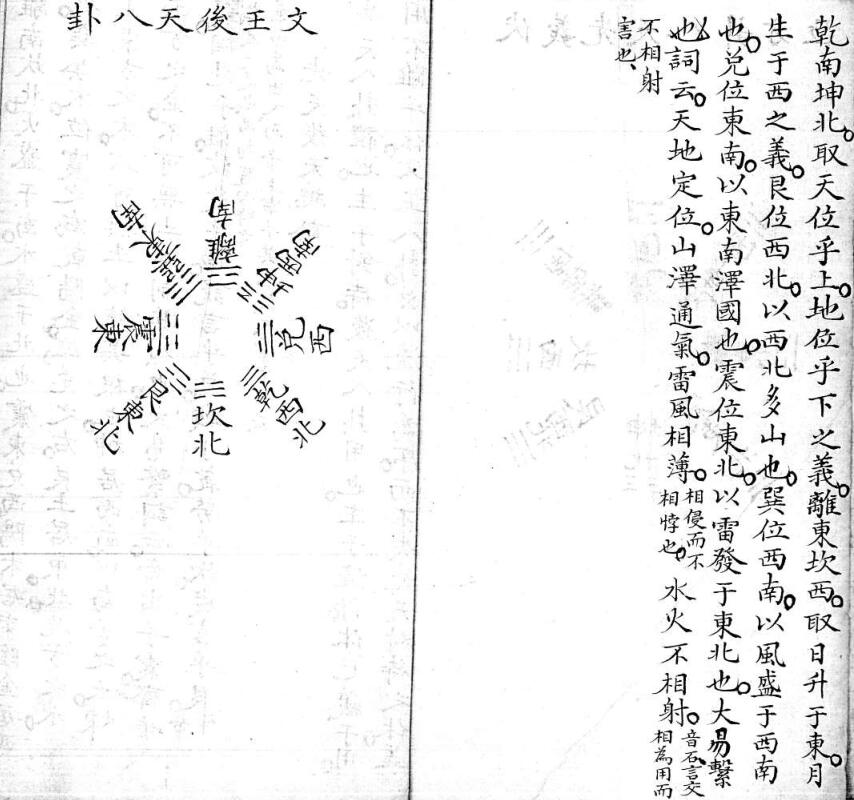 乾南坤北。取天位乎上。地位乎下之義。離東坎西。取日升于東。月
生于西之義。艮位西北。以西北多山也。巽位西南。以風盛于西南
也。兌位東南。以東南澤國也。震位東北。以雷發于東北也。大易繫
也詞云。天地定位。山澤通氣。雷風相薄。相侵而不相悖也。水火不相射。音石言交相為用而
不相射害也、
文王後天八卦
離南
坤西南
兌西
乾西北
坎北
艮東北
震東
巽東南